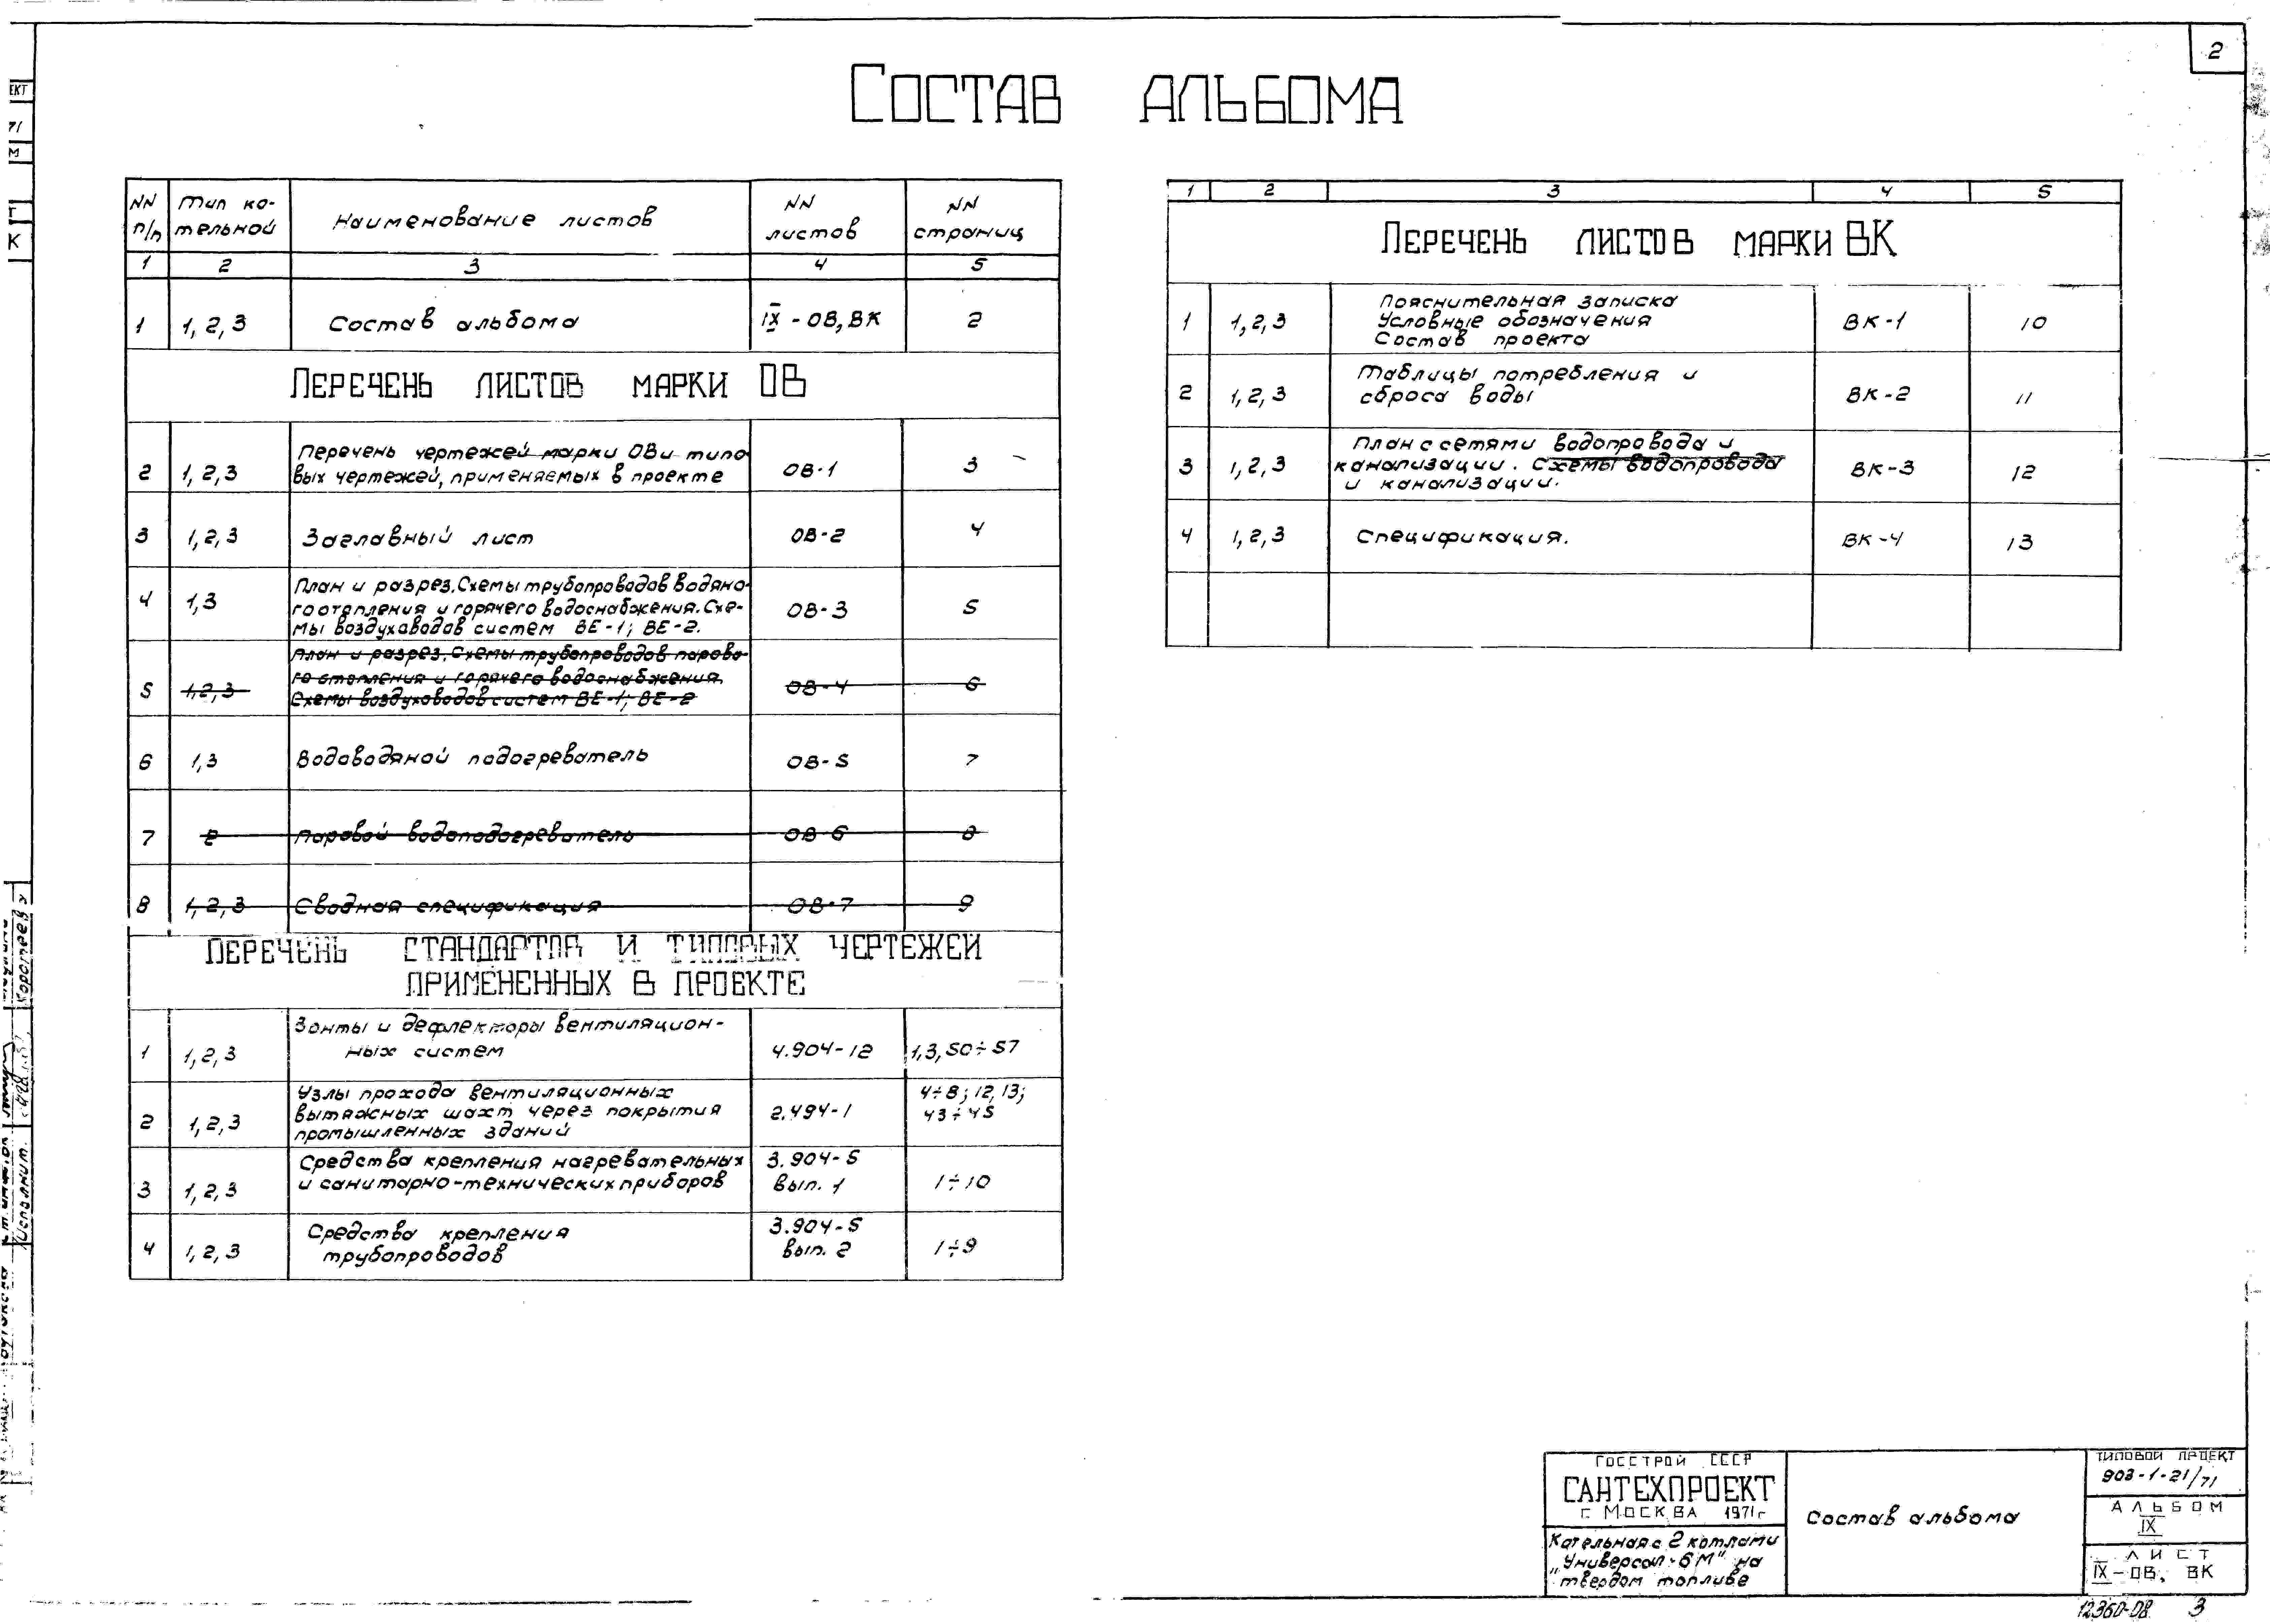 2
СОСТАВ АЛЬБОМА
NN п/п
Тип ко-
тельной
Наименование листов
NN листов
NN страниц
1 2 3 4 5
1 1,2,3 Состав альбома IX-ОВ,ВК 2
ПЕРЕЧЕНЬ ЛИСТОВ МАРКИ ОВ
Перечень чертежей марки ОВ и типо
2 1,2,3 вых чертежей, применяемых в проекте ОВ-1 3
3 1,2,3 Заглавный лист ОВ-2 4
План и разрез. Схемы трубопроводов водяно-
4 1,3 го отопления и горячего водоснабжения. Схе- ОВ-3 5
мы воздуховодов систем ВЕ-1; ВЕ-2.
План и разрез. Схемы трубопроводов парово-
5 1,2,3 го отопления и горячего водоснабжения. ОВ-4 6
Схемы воздуховодов систем ВЕ-1; ВЕ-2
6 1,3 Водоводяной подогреватель ОВ-5 7
7 2 Паровой водоподогреватель ОВ-6 8
8 1,2,3 Сводная спецификация ОВ-7 9
ПЕРЕЧЕНЬ СТАНДАРТОВ И ТИПОВЫХ ЧЕРТЕЖЕЙ
ПРИМЕНЕННЫХ В ПРОЕКТЕ
Зонты и дефлекторы вентиляцион-
1 1,2,3 ных систем 4.904-12 1,3,50÷57
Узлы прохода вентиляционных 4÷8; 12,13;
2 1,2,3 вытяжных шахт через покрытия 2.494-1 43÷45
промышленных зданий
Средства крепления нагревательных 3.904-5
3 1,2,3 и санитарно-технических приборов вып. 1 1÷10
Средства крепления 3.904-5
4 1,2,3 трубопроводов вып. 2 1÷9
1 2 3 4 5
ПЕРЕЧЕНЬ ЛИСТОВ МАРКИ ВК
Пояснительная записка
1 1,2,3 Условные обозначения ВК-1 10
Состав проекта
Таблицы потребления и
2 1,2,3 сброса воды ВК-2 11
План с сетями водопровода и
3 1,2,3 канализации. Схемы водопровода ВК-3 12
и канализации.
4 1,2,3 Спецификация. ВК-4 13
ГОССТРОЙ СССР
САНТЕХПРОЕКТ
Г. МОСКВА 1971г
Котельная с 2 котлами
"Универсал-6М" на
твердом топливе
Состав альбома
ТИПОВОЙ ПРОЕКТ
903-1-21/71
АЛЬБОМ
IX
ЛИСТ
IX-ОВ, ВК
12360-08 3
ЕКТ
71
М
Г
К
Исполнит.